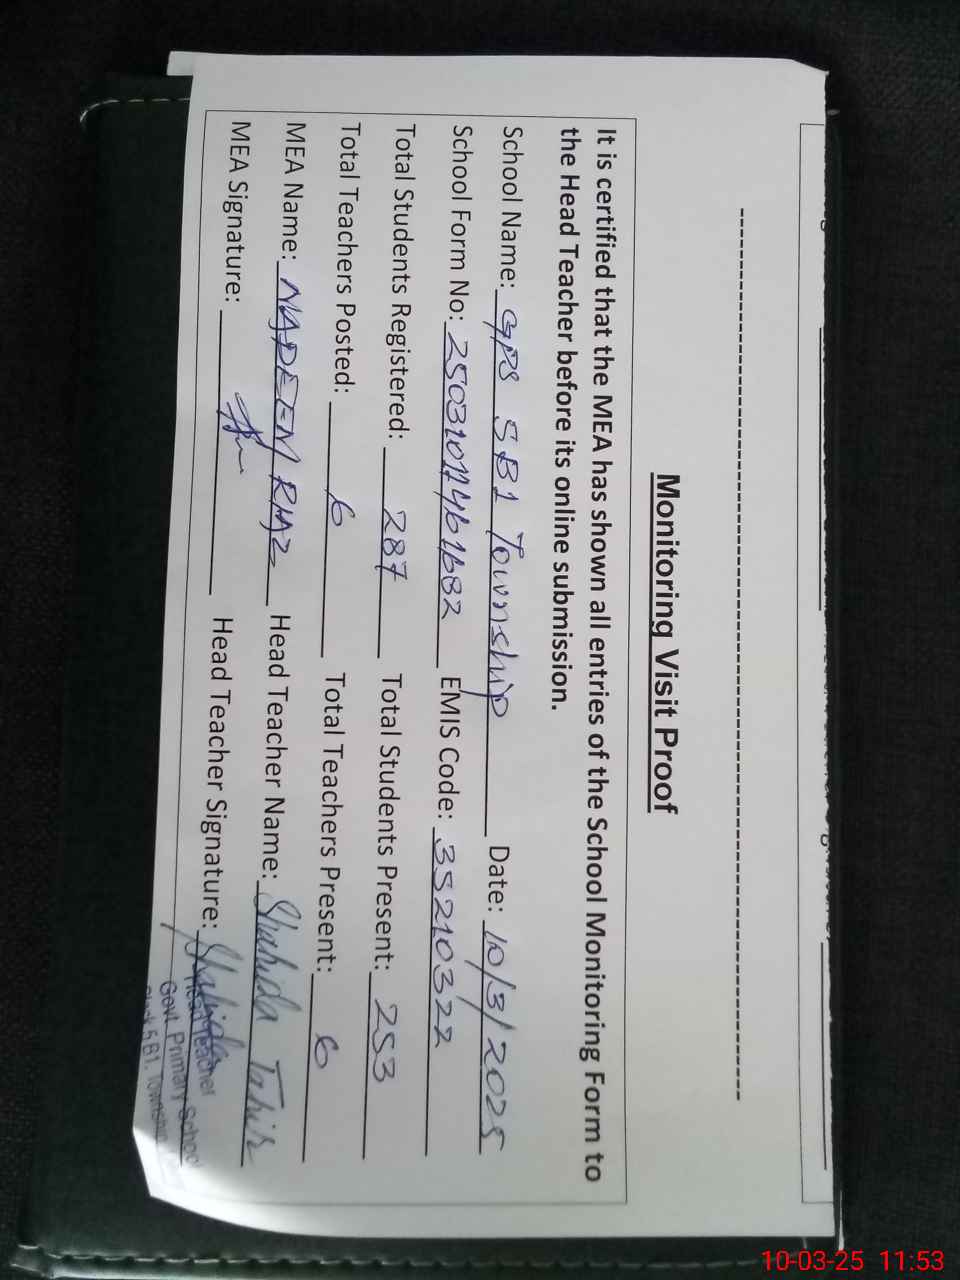 Monitoring Visit Proof
It is certified that the MEA has shown all entries of the School Monitoring Form to
the Head Teacher before its online submission.
School Name: GPS 5B1 Township Date: 10/3/2025
School Form No: EMIS Code: 35210322
Total Students Registered: 287 Total Students Present: 253
Total Teachers Posted: 6 Total Teachers Present: 6
MEA Name: NADEEM RIAZ Head Teacher Name: Shahida Tahir
MEA Signature: Head Teacher Signature: Shahida
Head Teacher
Govt. Primary School
5.B1. Township
10-03-25 11:53